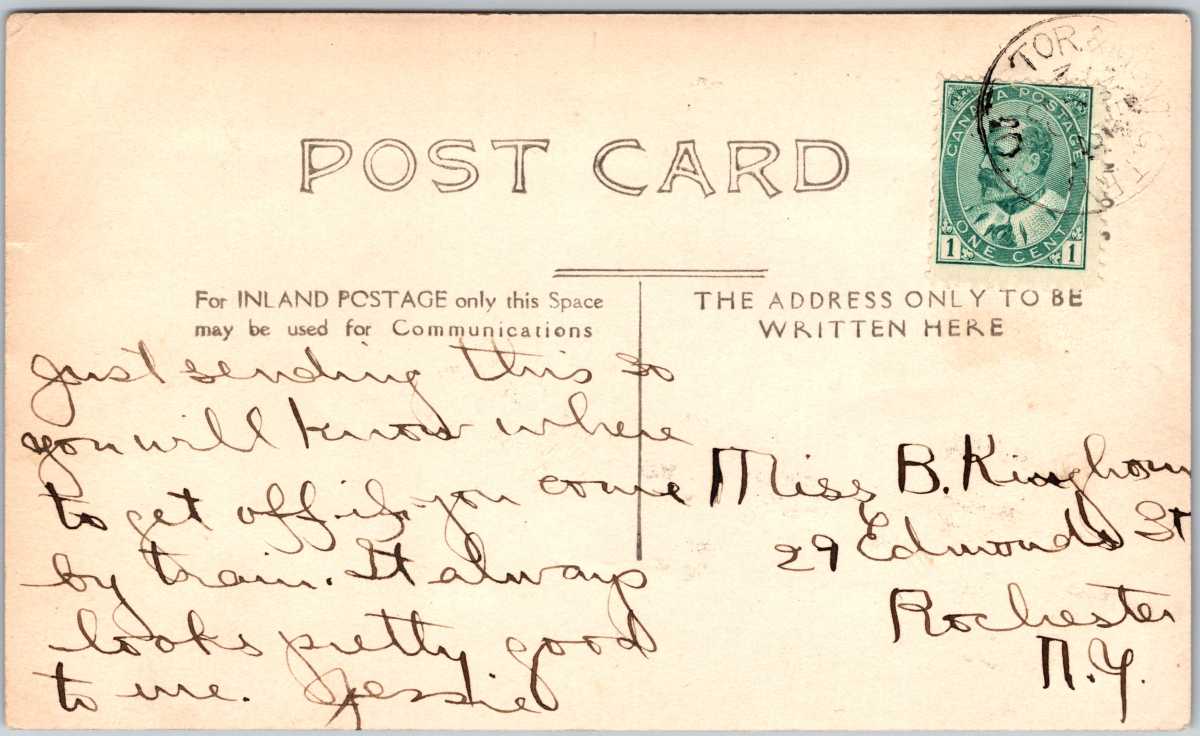 POST CARD
TOR. &
10
CANADA POSTAGE
1 ONE CENT 1
For INLAND POSTAGE only this Space
may be used for Communications
THE ADDRESS ONLY TO BE
WRITTEN HERE
Just sending this so
you will know where
to get off if you come
by train. It always
looks pretty good
to me. Jessie
Miss B. Kinghorn
29 Edmonds St
Rochester
N.Y.